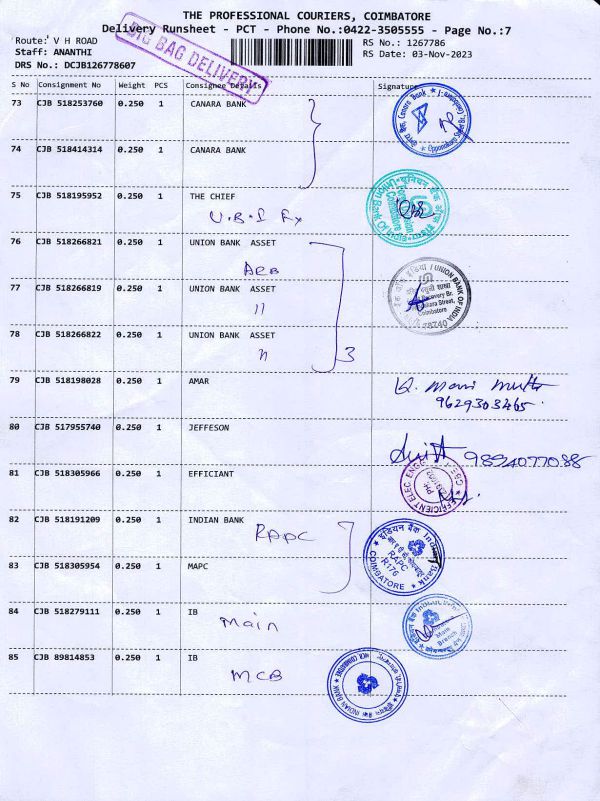 THE PROFESSIONAL COURIERS, COIMBATORE
Delivery Runsheet - PCT - Phone No.:0422-3505555 - Page No.:7
Route: V H ROAD
RS No.: 1267786
Staff: ANANTHI
RS Date: 03-Nov-2023
DRS No.: DCJB126778607
BIG BAG DELIVERY
S No Consignment No Weight PCS Consignee Details Signature
73 CJB 518253760 0.250 1 CANARA BANK
Canara Bank
74 CJB 518414314 0.250 1 CANARA BANK
75 CJB 518195952 0.250 1 THE CHIEF
U.B.I Fx
Union Bank Of India
यूनियन बैंक ऑफ इंडिया
Coimbatore
76 CJB 518266821 0.250 1 UNION BANK ASSET
ARB
77 CJB 518266819 0.250 1 UNION BANK ASSET
11
UNION BANK OF INDIA
Recovery Br.
Street,
Coimbatore
78 CJB 518266822 0.250 1 UNION BANK ASSET
11
3
79 CJB 518198028 0.250 1 AMAR
9629303465
80 CJB 517955740 0.250 1 JEFFESON
9894077088
81 CJB 518305966 0.250 1 EFFICIANT
EFFICIENT ELEC ENGE
CBE
82 CJB 518191209 0.250 1 INDIAN BANK
RAPC
इंडियन बैंक Indian Bank
RAPC
R176
COIMBATORE
83 CJB 518305954 0.250 1 MAPC
84 CJB 518279111 0.250 1 IB
Main
Main
Branch
85 CJB 89814853 0.250 1 IB
MCB
INDIAN BANK